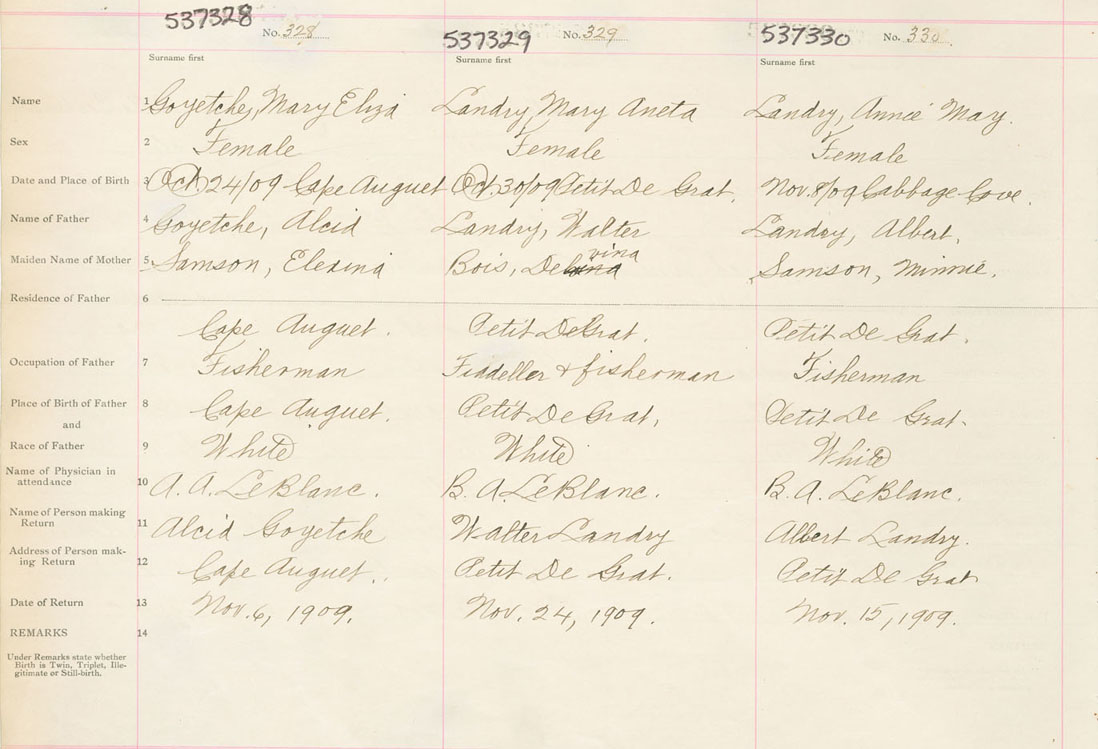 537328 No. 328 537329 No. 329 537330 No. 330
Surname first Surname first Surname first
Name 1 Goyetche, Mary Eliza Landry, Mary Aneta Landry, Annie May.
Sex 2 Female Female Female
Date and Place of Birth 3 Oct. 24/09 Cape Auguet Oct. 30/09 Petit De Grat. Nov. 8/09 Cabbage Cove.
Name of Father 4 Goyetche, Alcid Landry, Walter Landry, Albert.
vina
Maiden Name of Mother 5 Samson, Elexina Bois, De Samson, Minnie.
Residence of Father 6
Cape Auguet. Petit DeGrat. Petit De Grat.
Occupation of Father 7 Fisherman Fiddeller & fisherman Fisherman
Place of Birth of Father 8 Cape Auguet. Petit De Grat, Petit De Grat.
and
Race of Father 9 White White White
Name of Physician in
attendance 10 A. A. LeBlanc. B. A. LeBlanc. B. A. LeBlanc.
Name of Person making
Return 11 Alcid Goyetche Walter Landry Albert Landry.
Address of Person mak-
ing Return 12 Cape Auguet. Petit De Grat. Petit De Grat
Date of Return 13 Nov. 6, 1909. Nov. 24, 1909. Nov. 15, 1909.
REMARKS 14
Under Remarks state whether
Birth is Twin, Triplet, Ille-
gitimate or Still-birth.